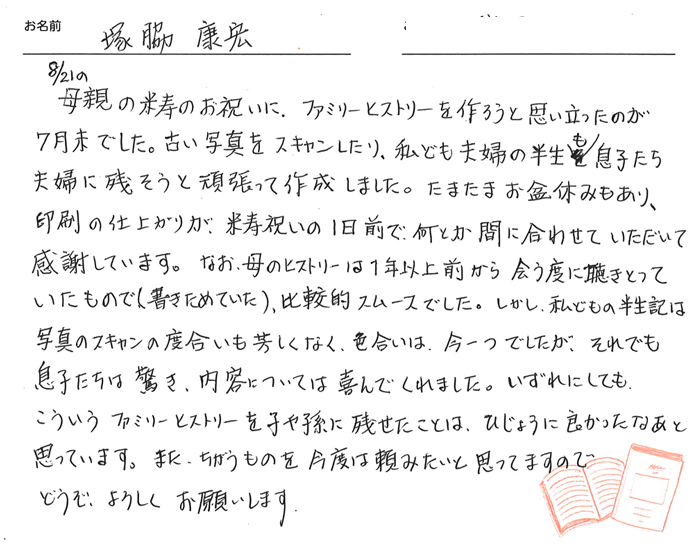 お名前 塚脇 康宏
8/21の
母親の米寿のお祝いに、ファミリーヒストリーを作ろうと思い立ったのが
7月末でした。古い写真をスキャンしたり、私ども夫婦の半生も息子たち
夫婦に残そうと頑張って作成しました。たまたまお盆休みもあり、
印刷の仕上がりが、米寿祝いの1日前で、何とか間に合わせていただいて
感謝しています。なお、母のヒストリーは1年以上前から会う度に聴きとって
いたもので(書きためていた)、比較的スムースでした。しかし、私どもの半生記は
写真のスキャンの度合いも芳しくなく、色合いは、今一つでしたが、それでも
息子たちは驚き、内容については喜んでくれました。いずれにしても、
こういうファミリーヒストリーを子や孫に残せたことは、ひじょうに良かったなあと
思っています。また、ちがうものを今度は頼みたいと思ってますので
どうぞ、よろしくお願いします.